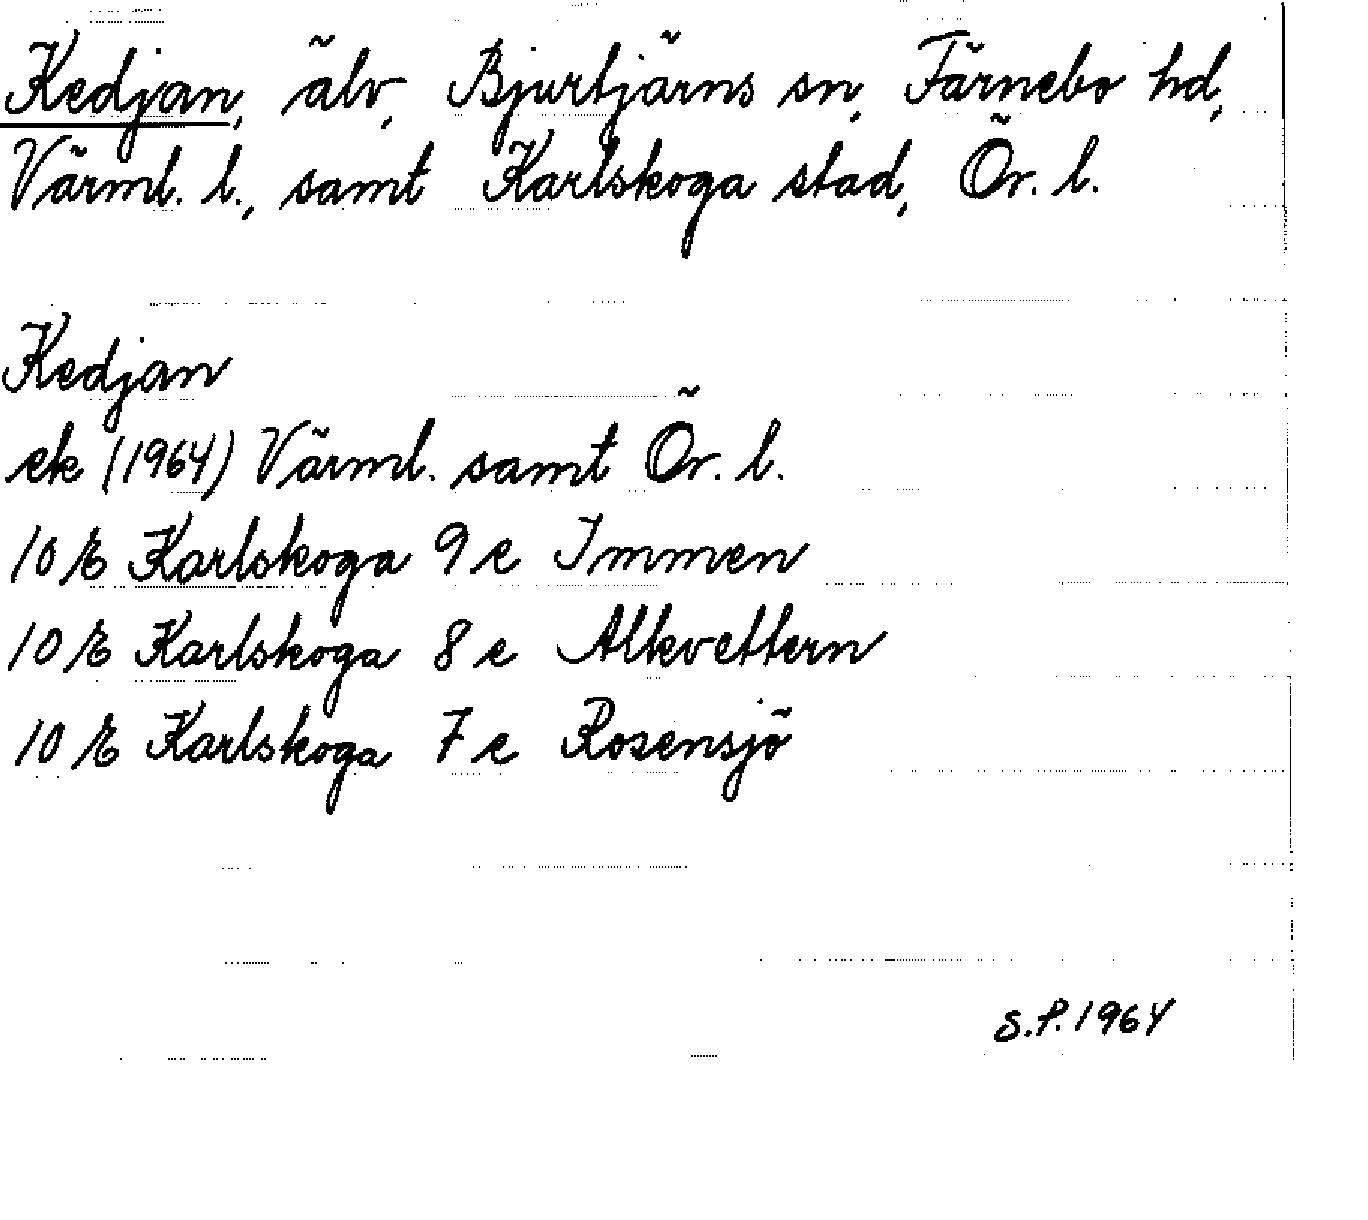 Kedjan, älv, Bjurtjärns sn, Färnebo hd,
Värml. l., samt Karlskoga stad, Ör. l.
Kedjan
ek (1964) Värml. samt Ör. l.
10 E Karlskoga 9 e Immen
10 E Karlskoga 8 e Alkvettern
10 E Karlskoga 7 e Rosensjö
S.P. 1964